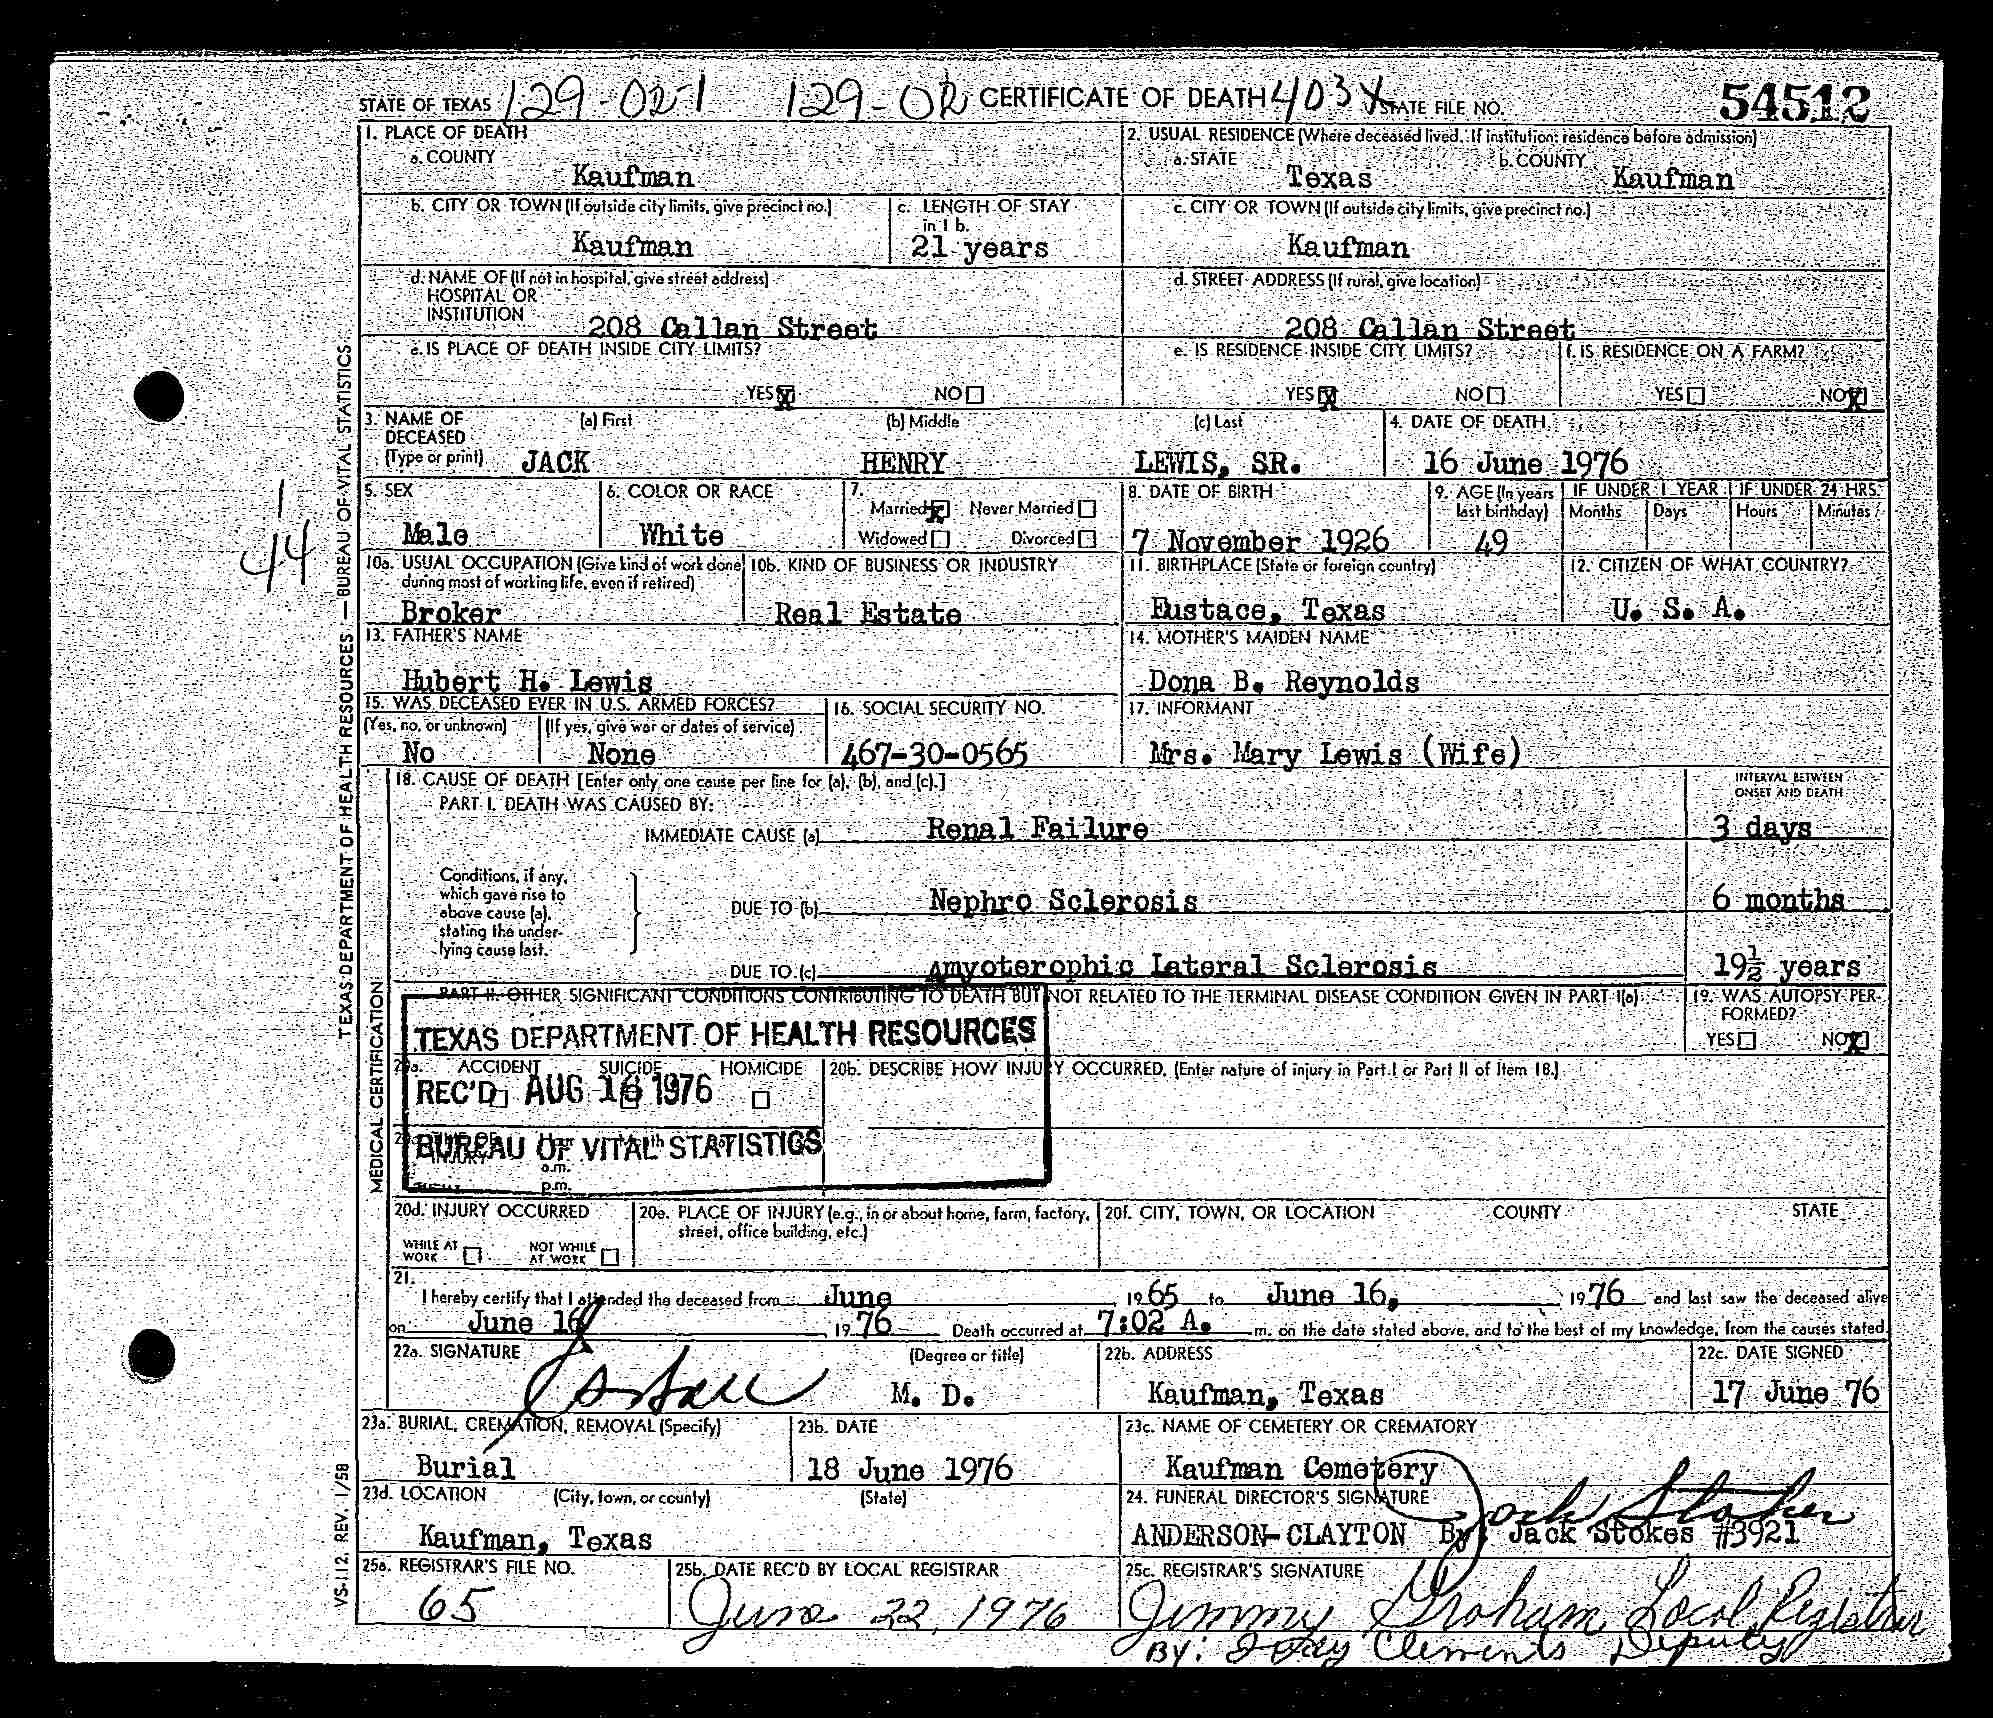 STATE OF TEXAS 129-02-1 129-02 CERTIFICATE OF DEATH 403X STATE FILE NO. 54512
1. PLACE OF DEATH
a. COUNTY
Kaufman
2. USUAL RESIDENCE (Where deceased lived. If institution: residence before admission)
a. STATE
Texas
b. COUNTY
Kaufman
b. CITY OR TOWN (If outside city limits, give precinct no.)
Kaufman
c. LENGTH OF STAY
in 1 b.
21 years
c. CITY OR TOWN (If outside city limits, give precinct no.)
Kaufman
d. NAME OF (If not in hospital, give street address)
HOSPITAL OR
INSTITUTION
208 Callan Street
d. STREET ADDRESS (If rural, give location)
208 Callan Street
e. IS PLACE OF DEATH INSIDE CITY LIMITS?
YES X NO
e. IS RESIDENCE INSIDE CITY LIMITS?
YES X NO
f. IS RESIDENCE ON A FARM?
YES NO X
3. NAME OF
DECEASED
(Type or print)
(a) First
JACK
(b) Middle
HENRY
(c) Last
LEWIS, SR.
4. DATE OF DEATH
16 June 1976
5. SEX
Male
6. COLOR OR RACE
White
7.
Married X Never Married
Widowed Divorced
8. DATE OF BIRTH
7 November 1926
9. AGE (In years
last birthday)
49
IF UNDER 1 YEAR
Months Days
IF UNDER 24 HRS.
Hours Minutes
10a. USUAL OCCUPATION (Give kind of work done
during most of working life, even if retired)
Broker
10b. KIND OF BUSINESS OR INDUSTRY
Real Estate
11. BIRTHPLACE (State or foreign country)
Eustace, Texas
12. CITIZEN OF WHAT COUNTRY?
U. S. A.
13. FATHER'S NAME
Hubert H. Lewis
14. MOTHER'S MAIDEN NAME
Dona B. Reynolds
15. WAS DECEASED EVER IN U.S. ARMED FORCES?
(Yes, no, or unknown)
No
(If yes, give war or dates of service)
None
16. SOCIAL SECURITY NO.
467-30-0565
17. INFORMANT
Mrs. Mary Lewis (Wife)
18. CAUSE OF DEATH [Enter only one cause per line for (a), (b), and (c).]
PART I. DEATH WAS CAUSED BY:
INTERVAL BETWEEN
ONSET AND DEATH
IMMEDIATE CAUSE (a) Renal Failure 3 days
Conditions, if any,
which gave rise to
above cause (a),
stating the under-
lying cause last.
DUE TO (b) Nephro Sclerosis 6 months
DUE TO (c) Amyoterophic Lateral Sclerosis 19½ years
PART II. OTHER SIGNIFICANT CONDITIONS CONTRIBUTING TO DEATH BUT NOT RELATED TO THE TERMINAL DISEASE CONDITION GIVEN IN PART I(a)
19. WAS AUTOPSY PER-
FORMED?
YES NO X
TEXAS DEPARTMENT OF HEALTH RESOURCES
REC'D AUG 16 1976
BUREAU OF VITAL STATISTICS
20a. ACCIDENT SUICIDE HOMICIDE
20b. DESCRIBE HOW INJURY OCCURRED. (Enter nature of injury in Part I or Part II of Item 18.)
INJURY
a.m.
p.m.
20d. INJURY OCCURRED
WHILE AT
WORK
NOT WHILE
AT WORK
20e. PLACE OF INJURY (e.g., in or about home, farm, factory,
street, office building, etc.)
20f. CITY, TOWN, OR LOCATION COUNTY STATE
21.
I hereby certify that I attended the deceased from June 1965 to June 16, 1976 and last saw the deceased alive
on June 16 1976 Death occurred at 7:02 A. m. on the date stated above, and to the best of my knowledge, from the causes stated.
22a. SIGNATURE
(Degree or title)
M. D.
22b. ADDRESS
Kaufman, Texas
22c. DATE SIGNED
17 June 76
23a. BURIAL, CREMATION, REMOVAL (Specify)
Burial
23b. DATE
18 June 1976
23c. NAME OF CEMETERY OR CREMATORY
Kaufman Cemetery
23d. LOCATION (City, town, or county) (State)
Kaufman, Texas
24. FUNERAL DIRECTOR'S SIGNATURE
Jack Stokes
ANDERSON-CLAYTON By: Jack Stokes #3921
25a. REGISTRAR'S FILE NO.
65
25b. DATE REC'D BY LOCAL REGISTRAR
June 22, 1976
25c. REGISTRAR'S SIGNATURE
Jimmy Graham Local Registrar
BY: Clements Deputy
TEXAS DEPARTMENT OF HEALTH RESOURCES — BUREAU OF VITAL STATISTICS
MEDICAL CERTIFICATION
VS-112, REV. 1/58
1
44